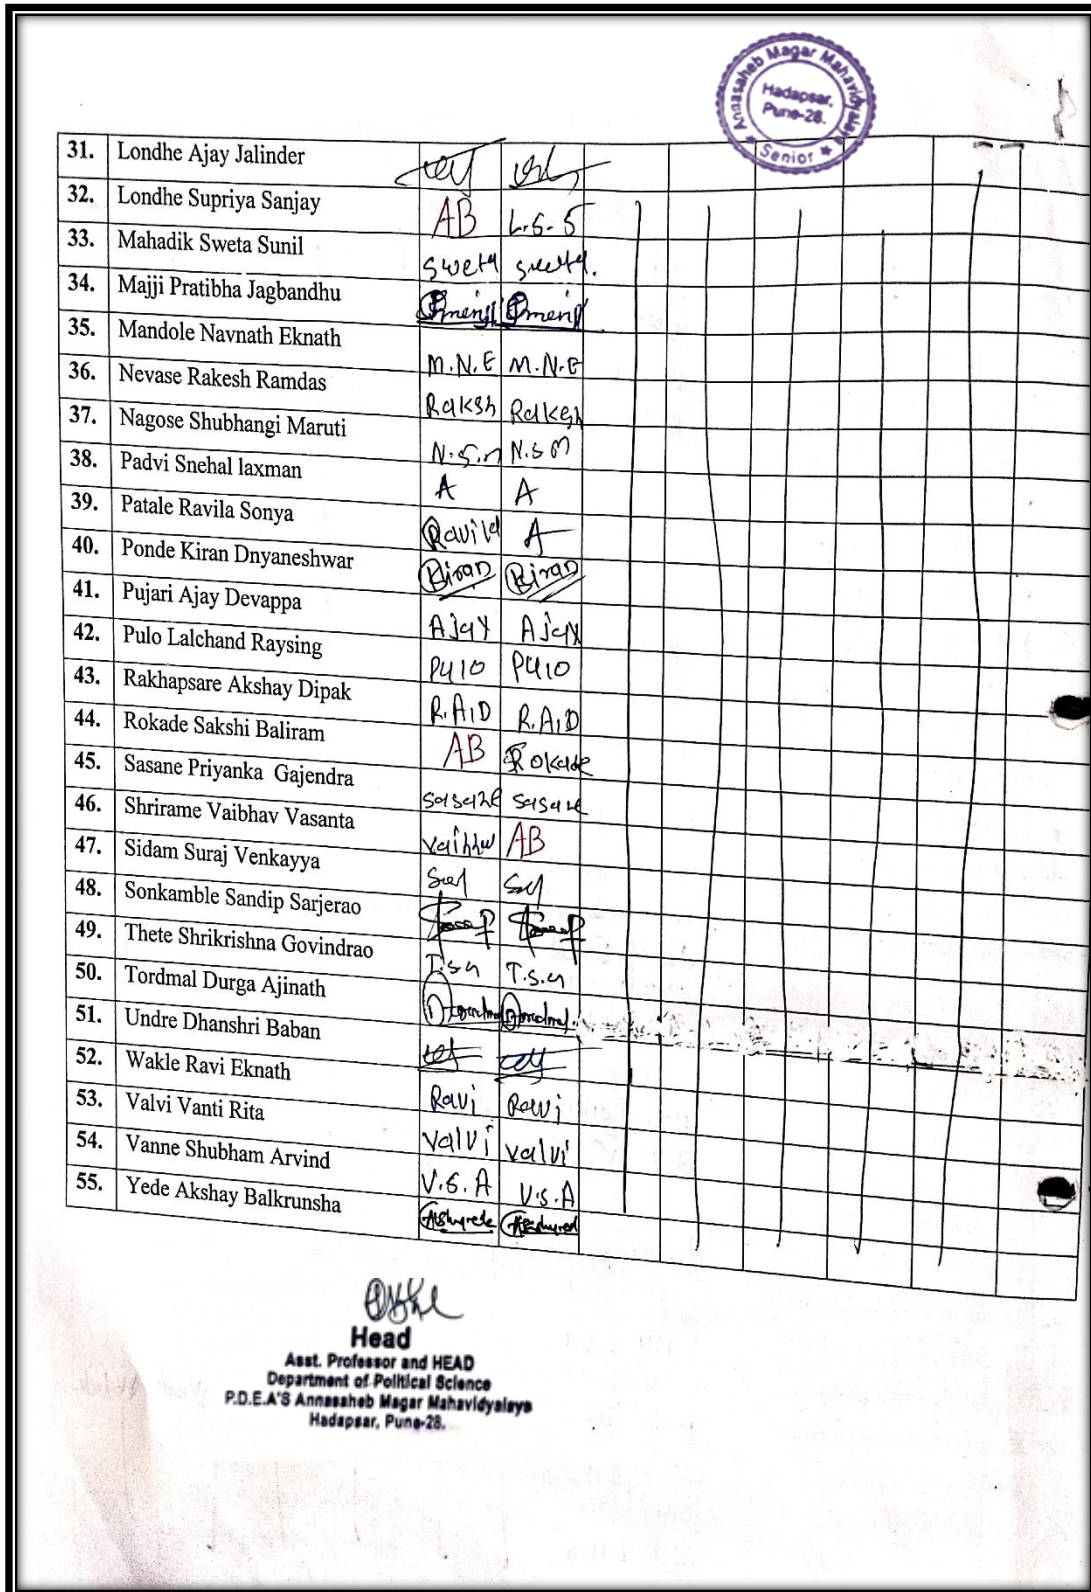 Annasaheb Magar Mahavidyalaya
Hadapsar,
Pune-28.
★ Senior ★
31. Londhe Ajay Jalinder
32. Londhe Supriya Sanjay AB L.S.S
33. Mahadik Sweta Sunil Sweta Sweta.
34. Majji Pratibha Jagbandhu
35. Mandole Navnath Eknath M.N.E M.N.E
36. Nevase Rakesh Ramdas Raksh Rakesh
37. Nagose Shubhangi Maruti N.S.M N.S M
38. Padvi Snehal laxman A A
39. Patale Ravila Sonya Ravila A
40. Ponde Kiran Dnyaneshwar Kiran Kiran
41. Pujari Ajay Devappa Ajay Ajay
42. Pulo Lalchand Raysing Pulo Pulo
43. Rakhapsare Akshay Dipak R.A.D R.A.D
44. Rokade Sakshi Baliram AB Rokade
45. Sasane Priyanka Gajendra Sasane Sasane
46. Shrirame Vaibhav Vasanta AB
47. Sidam Suraj Venkayya
48. Sonkamble Sandip Sarjerao
49. Thete Shrikrishna Govindrao T.S.G T.S.G
50. Tordmal Durga Ajinath
51. Undre Dhanshri Baban
52. Wakle Ravi Eknath Ravi Ravi
53. Valvi Vanti Rita Valvi Valvi
54. Vanne Shubham Arvind V.S.A V.S.A
55. Yede Akshay Balkrunsha
Head
Asst. Professor and HEAD
Department of Political Science
P.D.E.A'S Annasaheb Magar Mahavidyalaya
Hadapsar, Pune-28.